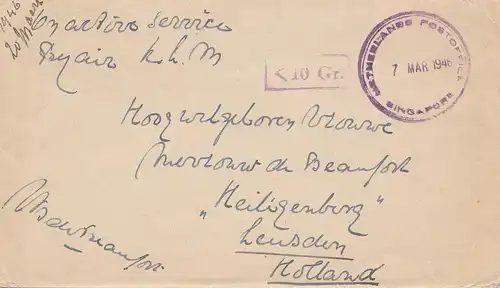 1946
On active service
By air K.L.M
< 10 Gr.
NETHERLANDS POSTOFFICE
7 MAR 1946
SINGAPORE
Hoogwelgeboren Vrouwe
Mevrouw de Beaufort
"Heiligenberg"
Leusden
Holland